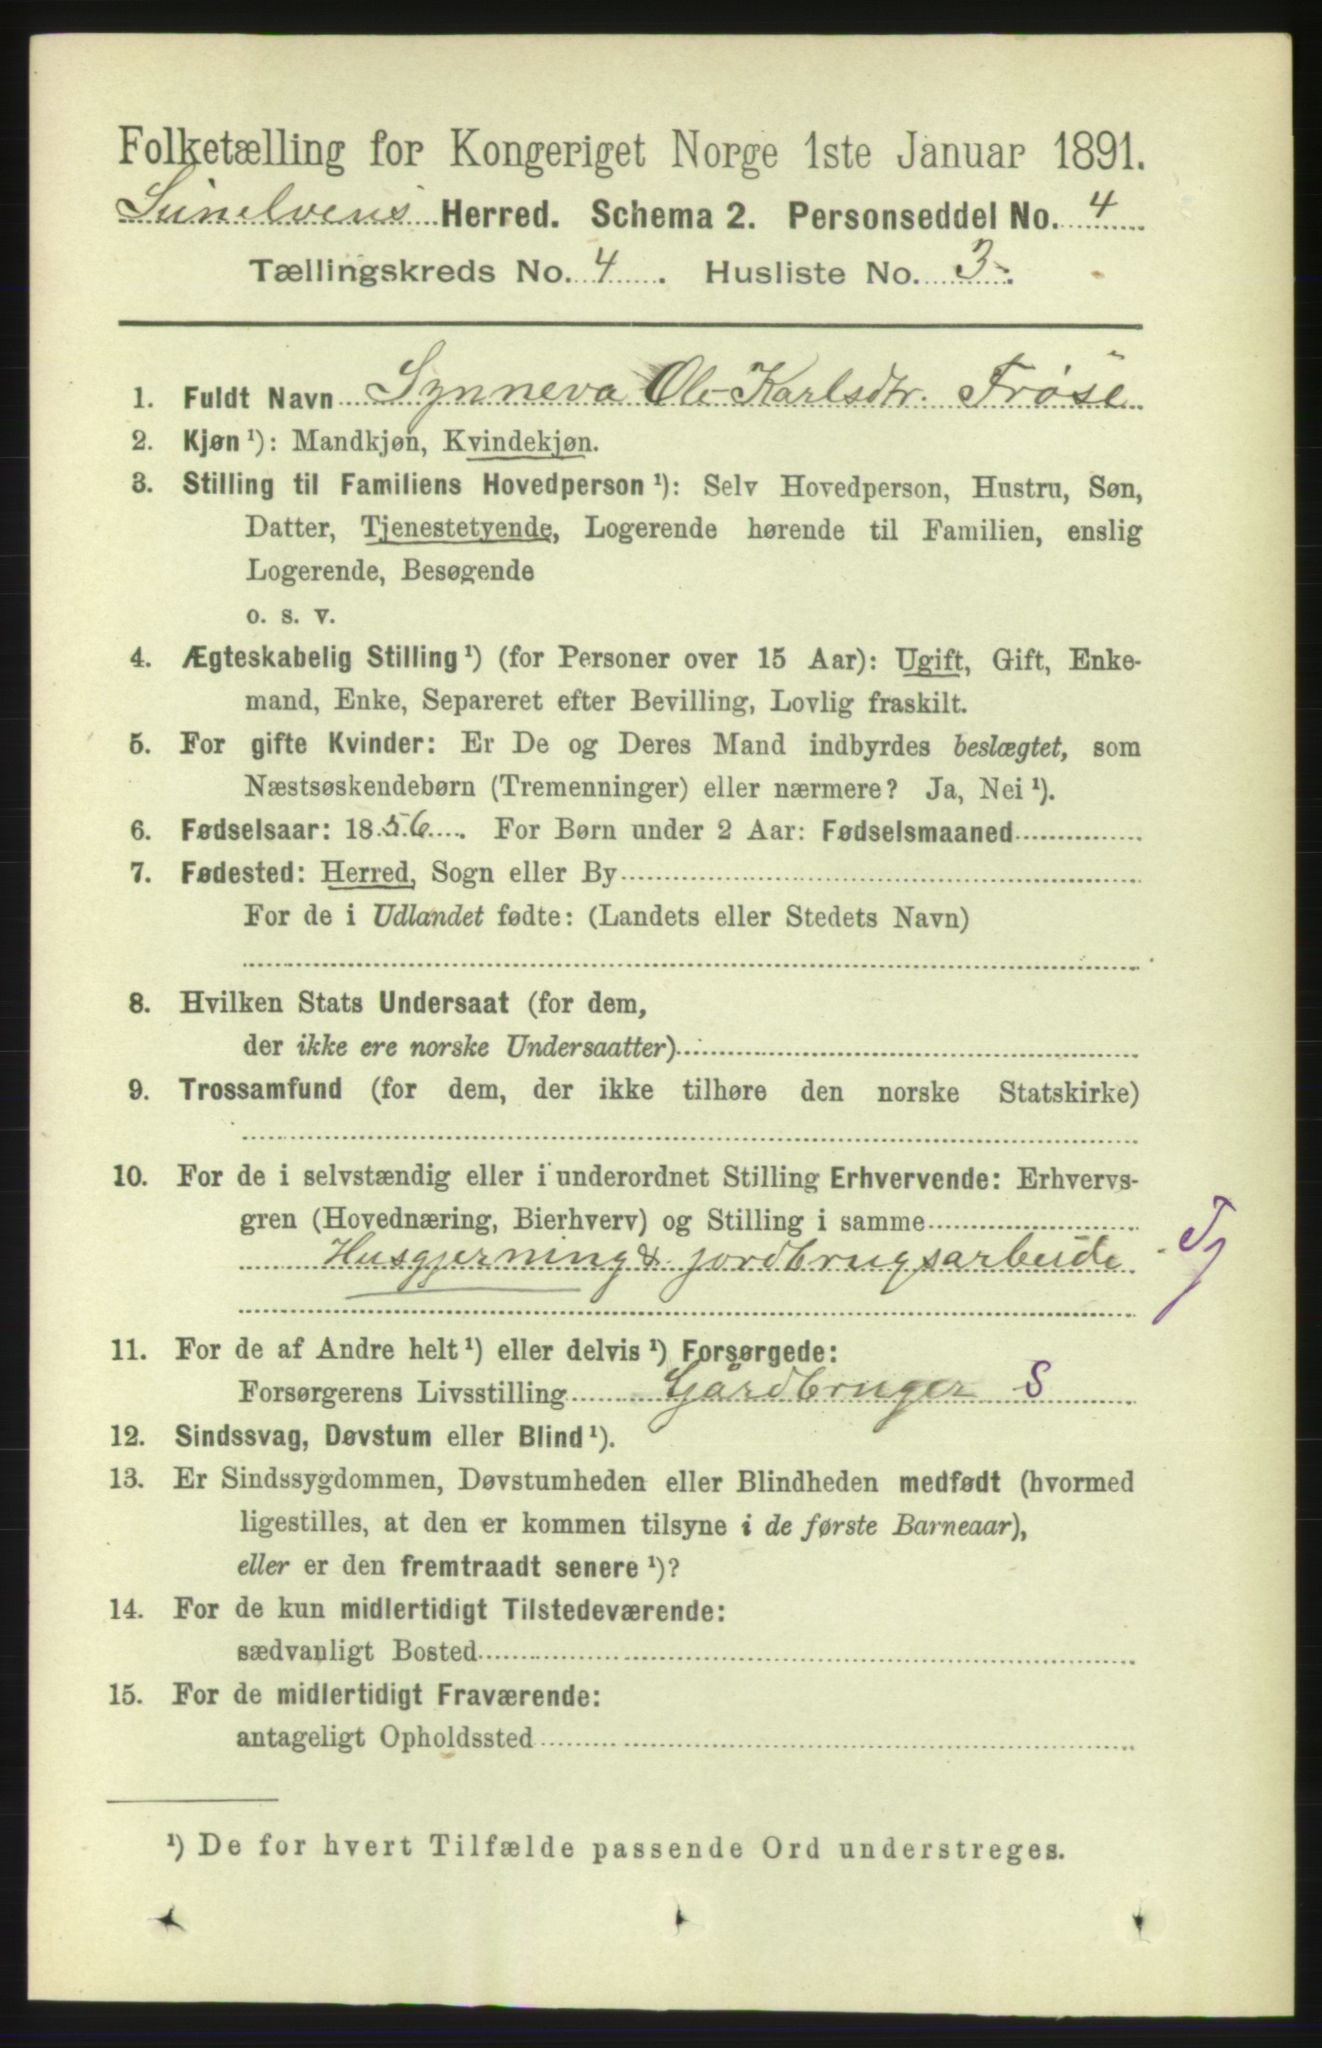 Folketælling for Kongeriget Norge 1ste Januar 1891.
Sunelvens Herred. Schema 2. Personseddel No. 4
Tællingskreds No. 4. Husliste No. 3.
1. Fuldt Navn Synneva Ole-Karlsdtr. Frøse
2. Kjøn ¹): Mandkjøn, Kvindekjøn.
3. Stilling til Familiens Hovedperson ¹): Selv Hovedperson, Hustru, Søn,
Datter, Tjenestetyende, Logerende hørende til Familien, enslig
Logerende, Besøgende
o. s. v.
4. Ægteskabelig Stilling ¹) (for Personer over 15 Aar): Ugift, Gift, Enke-
mand, Enke, Separeret efter Bevilling, Lovlig fraskilt.
5. For gifte Kvinder: Er De og Deres Mand indbyrdes beslægtet, som
Næstsøskendebørn (Tremenninger) eller nærmere? Ja, Nei ¹).
6. Fødselsaar: 1856. For Børn under 2 Aar: Fødselsmaaned
7. Fødested: Herred, Sogn eller By
For de i Udlandet fødte: (Landets eller Stedets Navn)
8. Hvilken Stats Undersaat (for dem,
der ikke ere norske Undersaatter)
9. Trossamfund (for dem, der ikke tilhøre den norske Statskirke)
10. For de i selvstændig eller i underordnet Stilling Erhvervende: Erhvervs-
gren (Hovednæring, Bierhverv) og Stilling i samme
Husgjerning & jordbrugsarbeide Tj
11. For de af Andre helt ¹) eller delvis ¹) Forsørgede:
Forsørgerens Livsstilling Gårdbruger S
12. Sindssvag, Døvstum eller Blind ¹).
13. Er Sindssygdommen, Døvstumheden eller Blindheden medfødt (hvormed
ligestilles, at den er kommen tilsyne i de første Barneaar),
eller er den fremtraadt senere ¹)?
14. For de kun midlertidigt Tilstedeværende:
sædvanligt Bosted
15. For de midlertidigt Fraværende:
antageligt Opholdssted
¹) De for hvert Tilfælde passende Ord understreges.